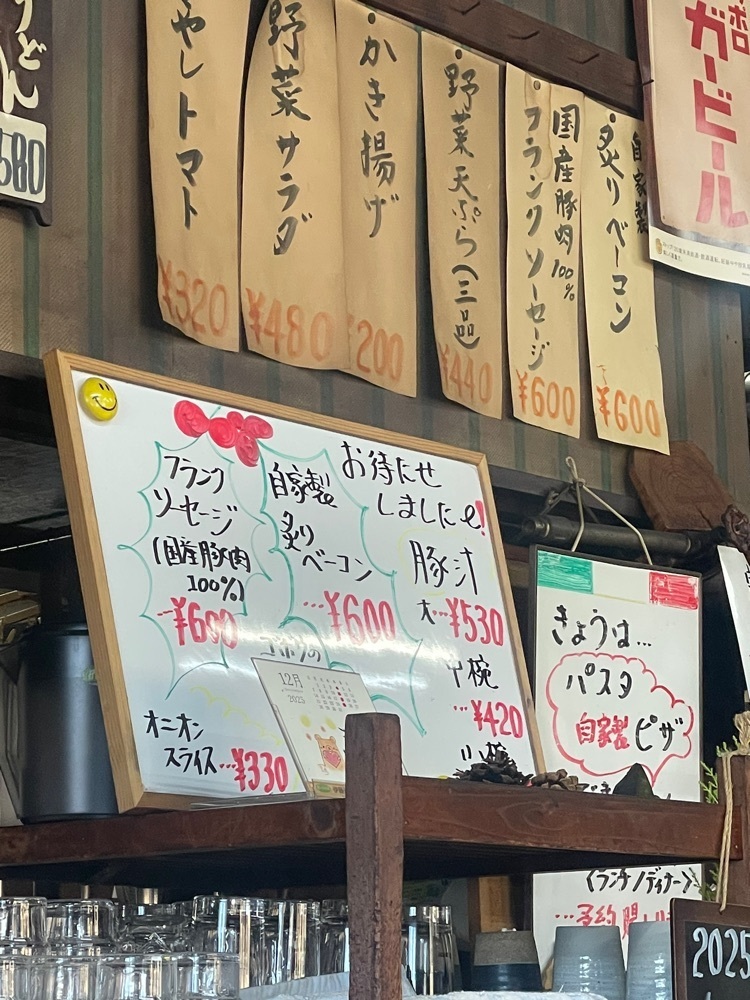 うどん
580
やしトマト
¥320
野菜サラダ
¥480
かき揚げ
¥200
野菜天ぷら(三品)
¥440
国産豚肉100%
フランクソーセージ
¥600
自家製
炙りベーコン
¥600
ガービール
お待たせ
しました!
フランク
ソーセージ
(国産豚肉
100%)
…¥600
自家製
炙り
ベーコン
…¥600
豚汁
大…¥530
中椀
…¥420
小椀
オニオン
スライス…¥330
12月
2025
きょうは…
パスタ
自家製ピザ
<ランチ/ディナー>
2025